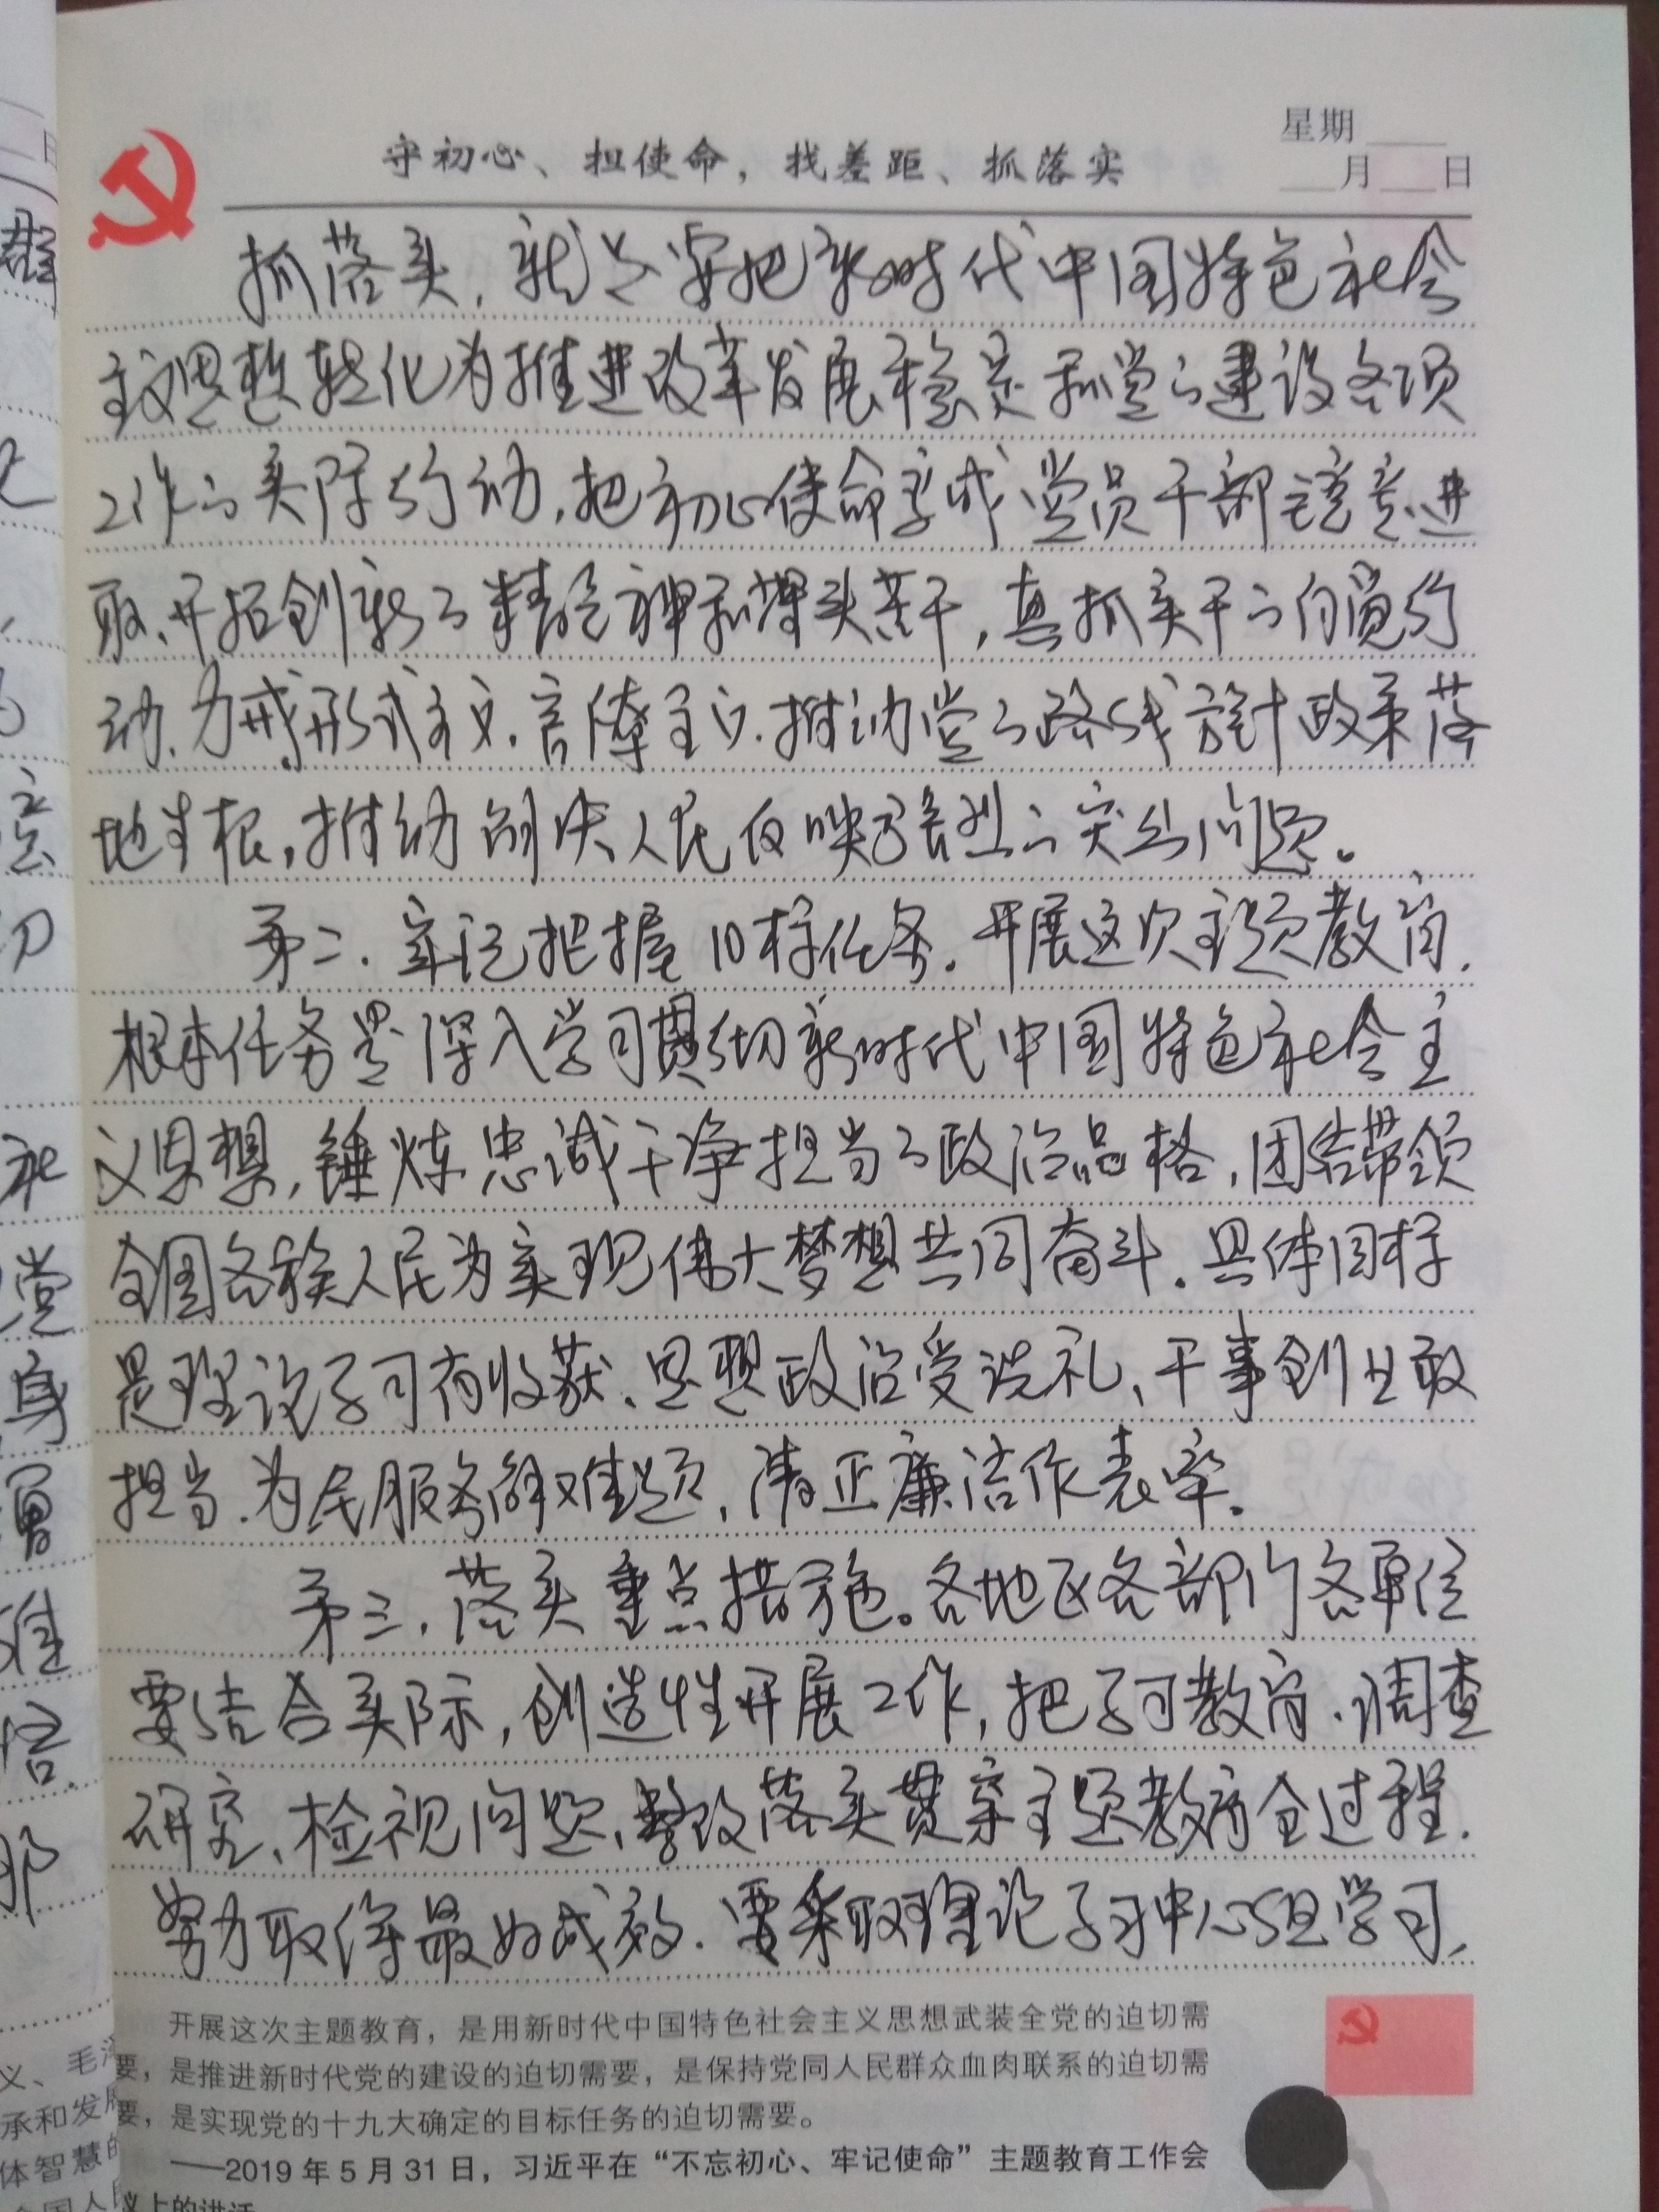 星期
月 日
守初心、担使命，找差距、抓落实
抓落实，就是要把新时代中国特色社会
主义思想转化为推进改革发展稳定和党的建设各项
工作的实际行动，把初心使命变成党员干部锐意进
取、开拓创新的精气神和埋头苦干，真抓实干的自觉行
动，力戒形式主义，官僚主义，推动党的路线方针政策落
地生根，推动解决人民反映强烈的突出问题。
第二、牢记把握目标任务。开展这次主题教育，
根本任务是深入学习贯彻新时代中国特色社会主
义思想，锤炼忠诚干净担当的政治品格，团结带领
全国各族人民为实现伟大梦想共同奋斗。具体目标
是理论学习有收获、思想政治受洗礼、干事创业敢
担当、为民服务解难题，清正廉洁作表率。
第三，落实重点措施。各地区各部门各单位
要结合实际，创造性开展工作，把学习教育、调查
研究、检视问题、整改落实贯穿主题教育全过程，
努力取得最好成效。要采取理论学习中心组学习、
开展这次主题教育，是用新时代中国特色社会主义思想武装全党的迫切需
要，是推进新时代党的建设的迫切需要，是保持党同人民群众血肉联系的迫切需
要，是实现党的十九大确定的目标任务的迫切需要。
——2019年5月31日，习近平在“不忘初心、牢记使命”主题教育工作会
议上的讲话